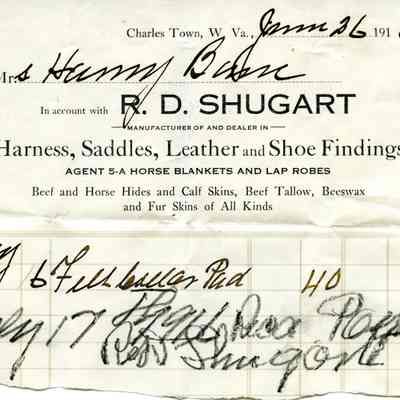 Charles Town, W. Va., June 26 191
Mrs Harry Bane
In account with R. D. SHUGART
MANUFACTURER OF AND DEALER IN
Harness, Saddles, Leather and Shoe Findings
AGENT 5-A HORSE BLANKETS AND LAP ROBES
Beef and Horse Hides and Calf Skins, Beef Tallow, Beeswax
and Fur Skins of All Kinds
6 Felt Collar Pad 40
17
RD Shugart